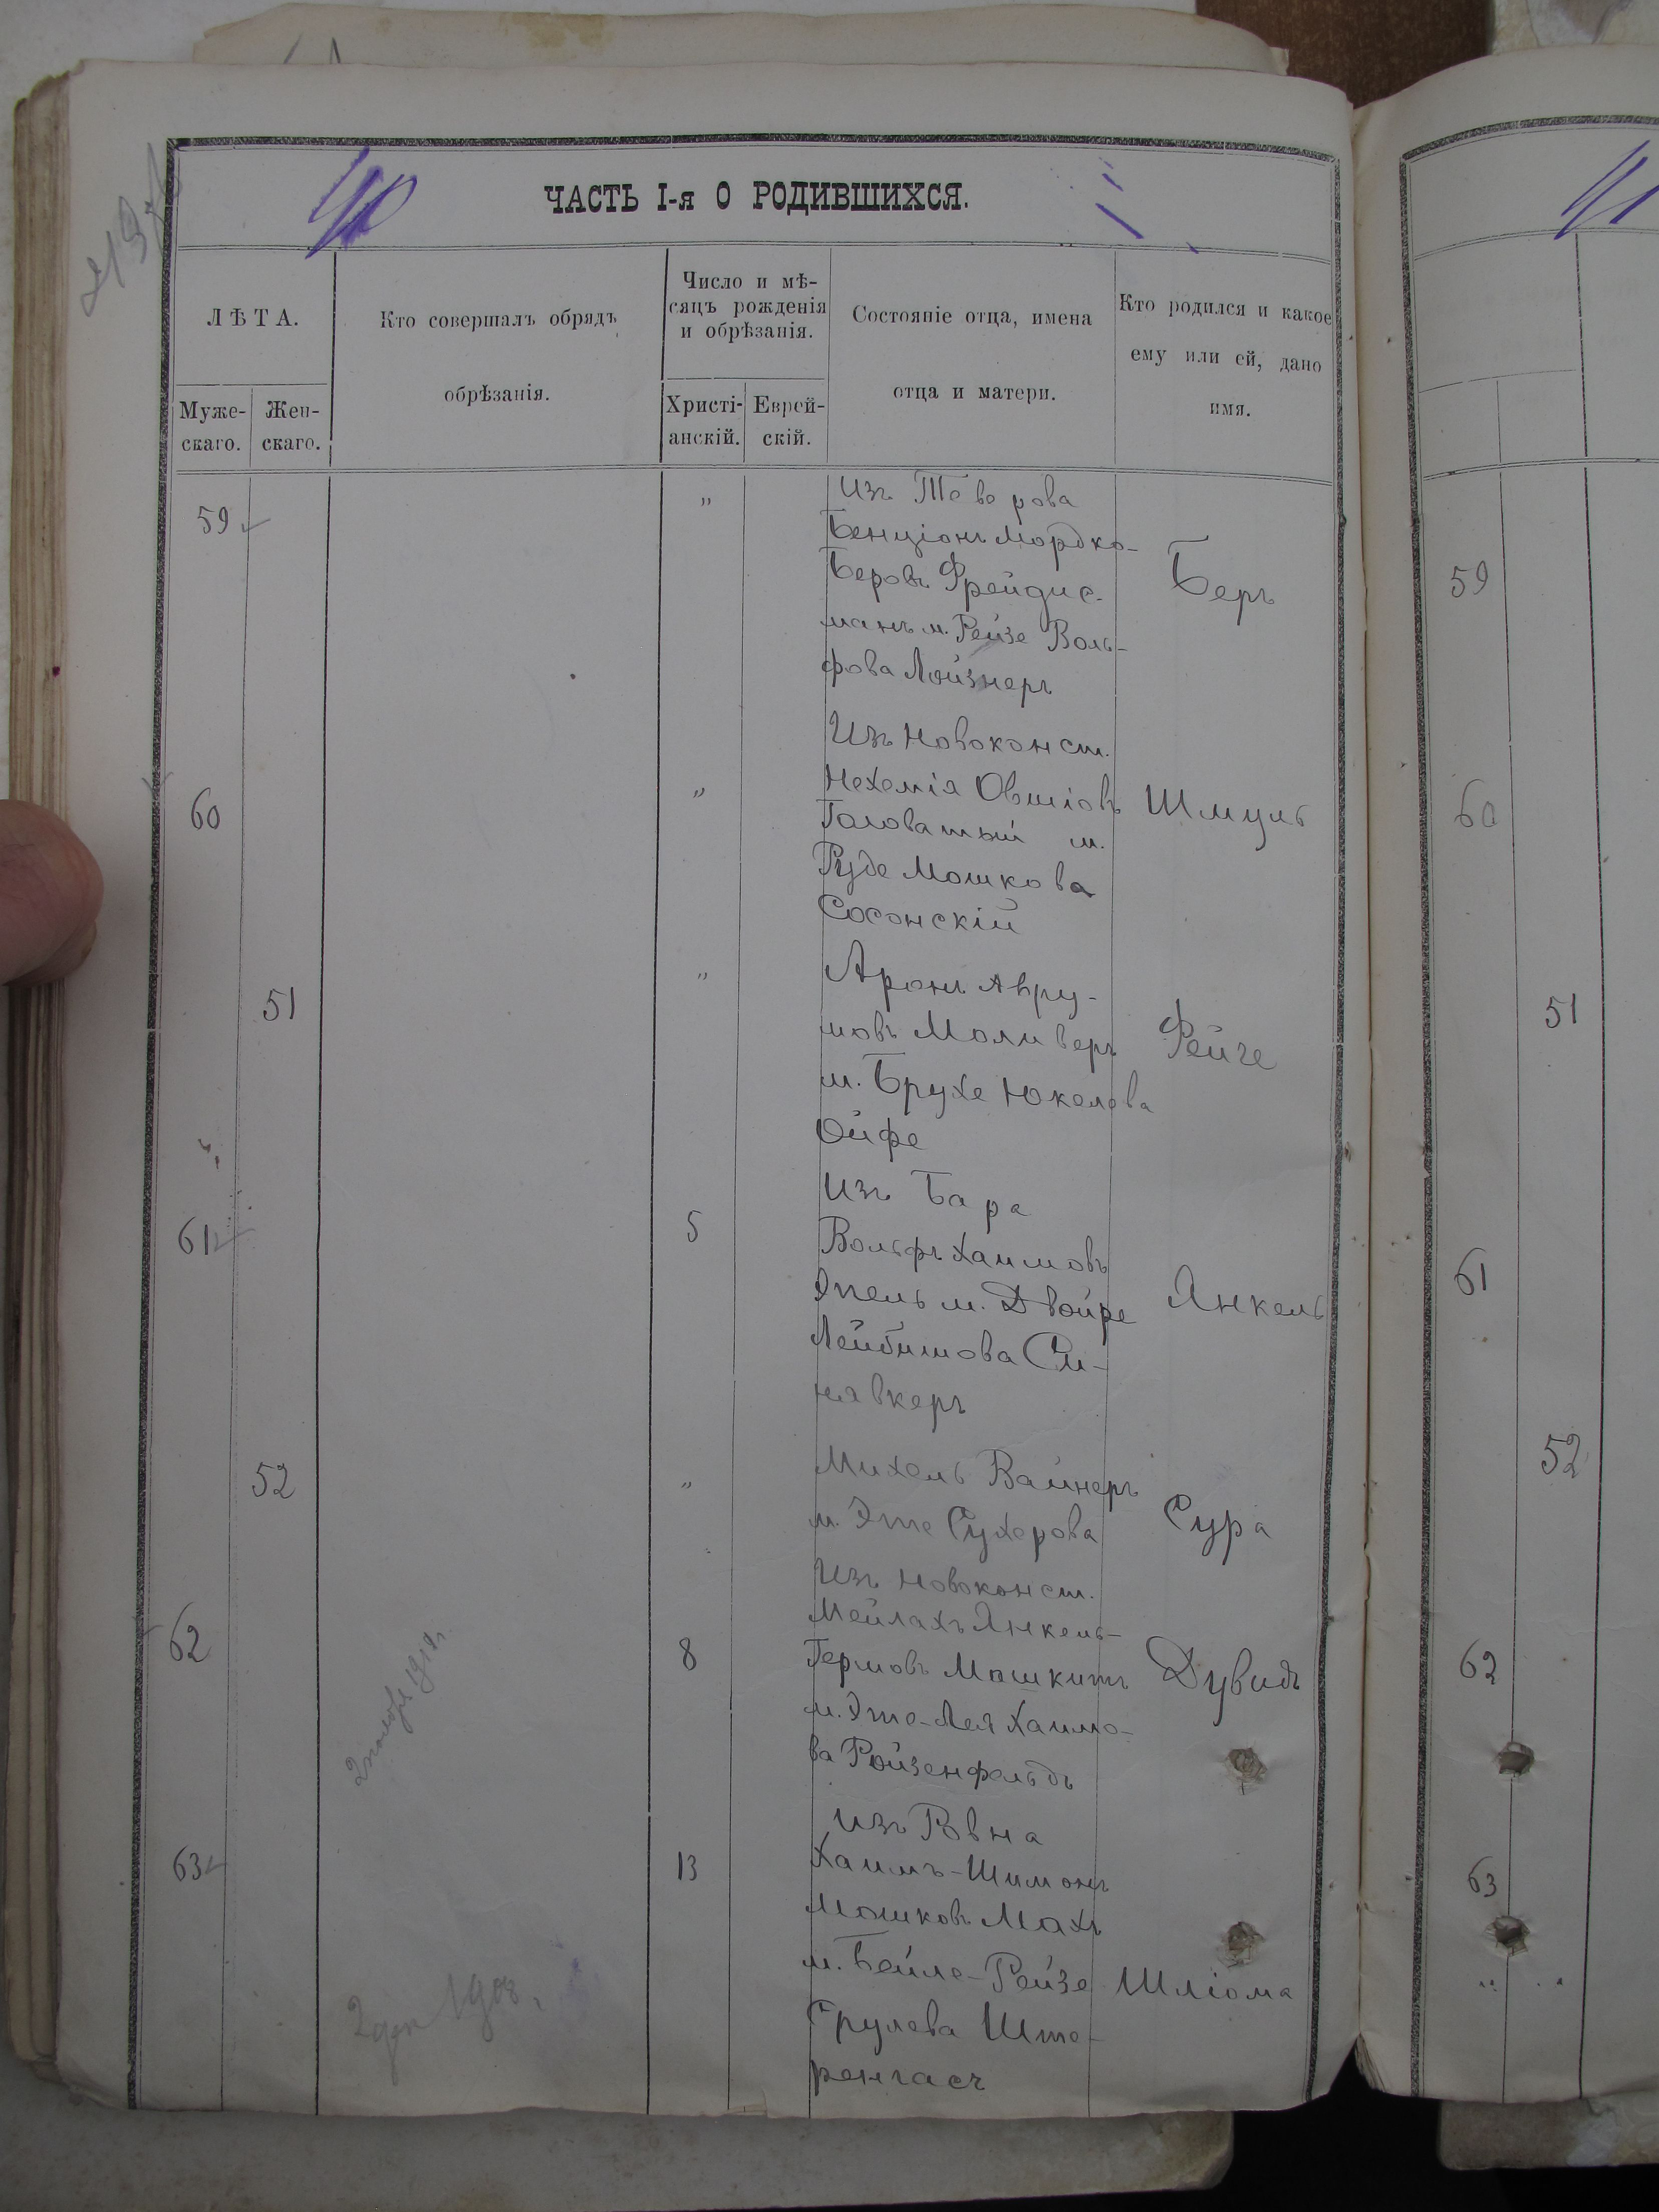 40
ЧАСТЬ I-я О РОДИВШИХСЯ.
41
ЛѢТА.
Муже-
скаго.
Жен-
скаго.
Кто совершалъ обрядъ
обрѣзанія.
Число и мѣ-
сяцъ рожденія
и обрѣзанія.
Христі-
анскій.
Еврей-
скій.
Состояніе отца, имена
отца и матери.
Кто родился и какое
ему или ей, дано
имя.
59
"
Изъ
Бенціонъ Мордко-
Беровъ Фрейдис-
манъ м. Рейзе Воль-
фова Лойзнеръ
Беръ
59
60
"
Изъ Новоконст.
Нехемія Овшіовъ
Головатый м.
Руде Мошкова
Сосонскій
Шмуль
60
51
"
Аронъ Авру-
мовъ Моливеръ
м. Брухе Юкелева
Ойфе
Фейге
51
61
5
Изъ Бара
Вольфъ Хаимовъ
Эпель м. Двойре
Лейбишова Си-
нявкеръ
Янкель
61
52
"
Михель Вайнеръ
м. Эте Сухерова
Сура
52
62
8
Изъ Новоконст.
Мейлахъ Янкель-
Гермовъ Мошкитъ
м. Эте-Лея Хаимо-
ва Ройзенфельдъ
Дувидъ
62
63
13
Изъ Ровна
Хаимъ-Шимонъ
Мошковъ Махъ
м. Бейле-Рейзе
Срулева Ште-
ренгасъ
Шліома
63